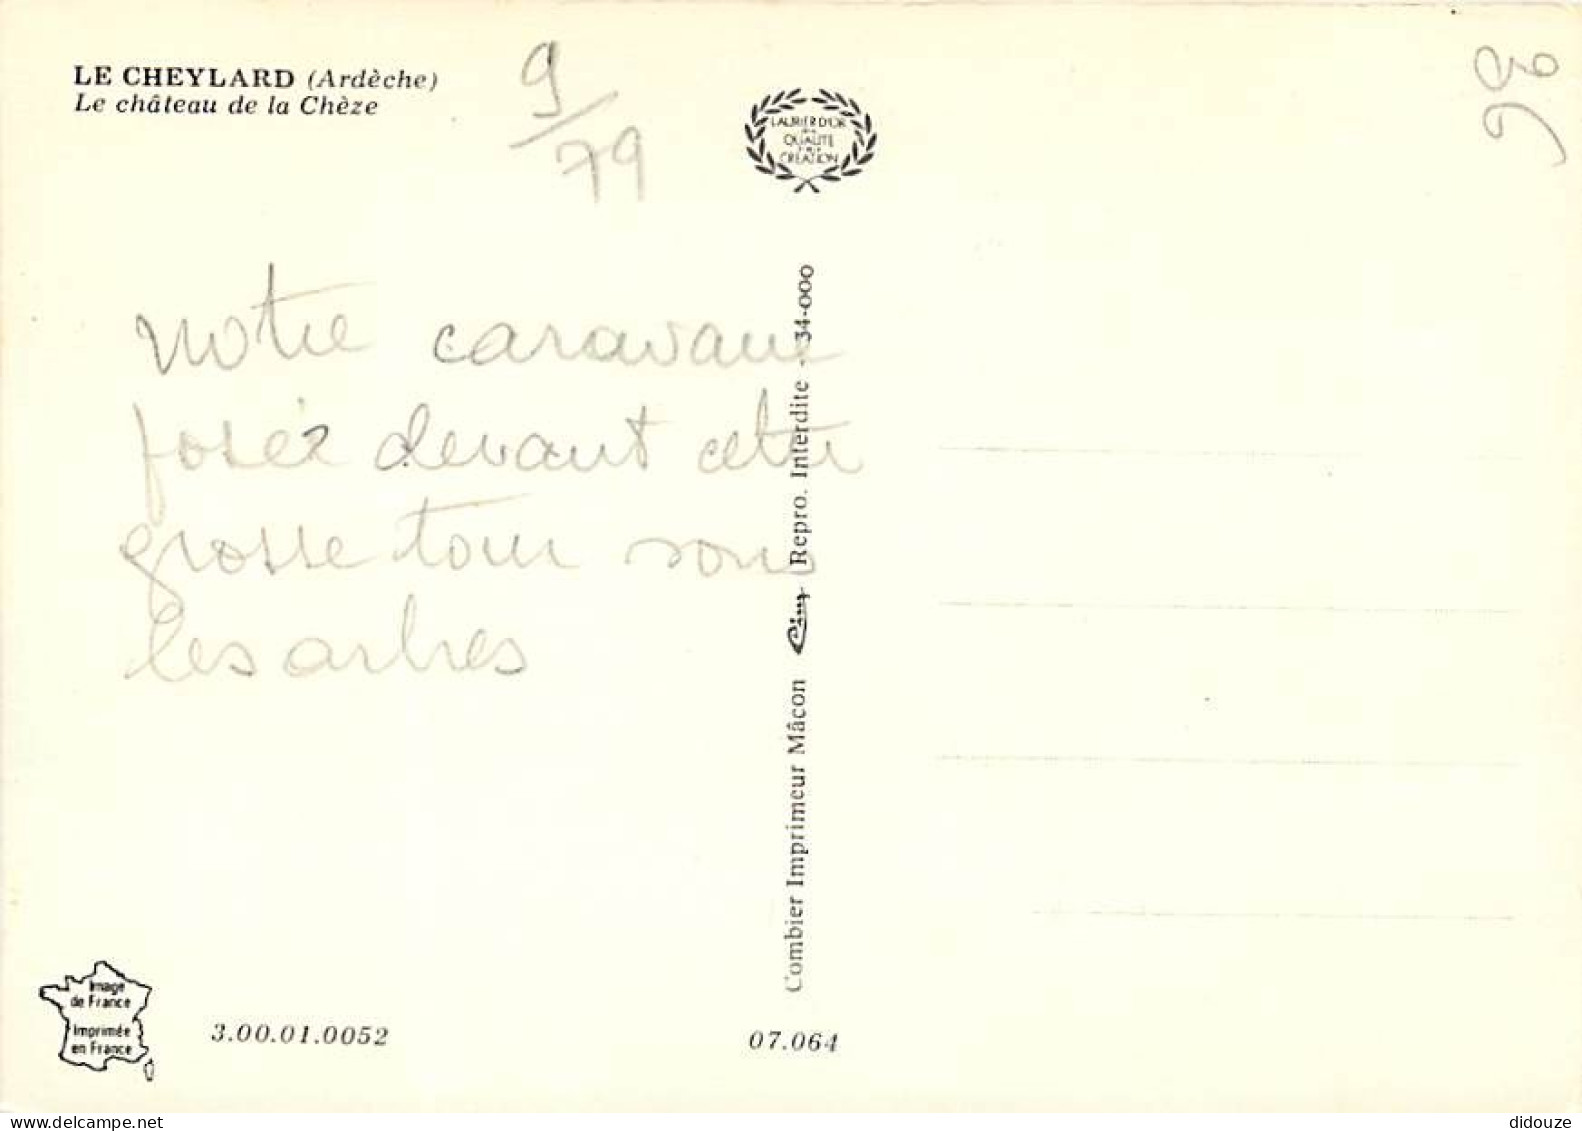 LE CHEYLARD (Ardèche)
Le château de la Chèze
9/79
98
LAURIER D'OR
QUALITE
CREATION
notre caravane
posée devant cette
grosse tour sous
les arbres
Combier Imprimeur Mâcon Cim Repro. Interdite - 34-000
Image
de France
Imprimée
en France
3.00.01.0052
07.064
delcampe.net
didouze